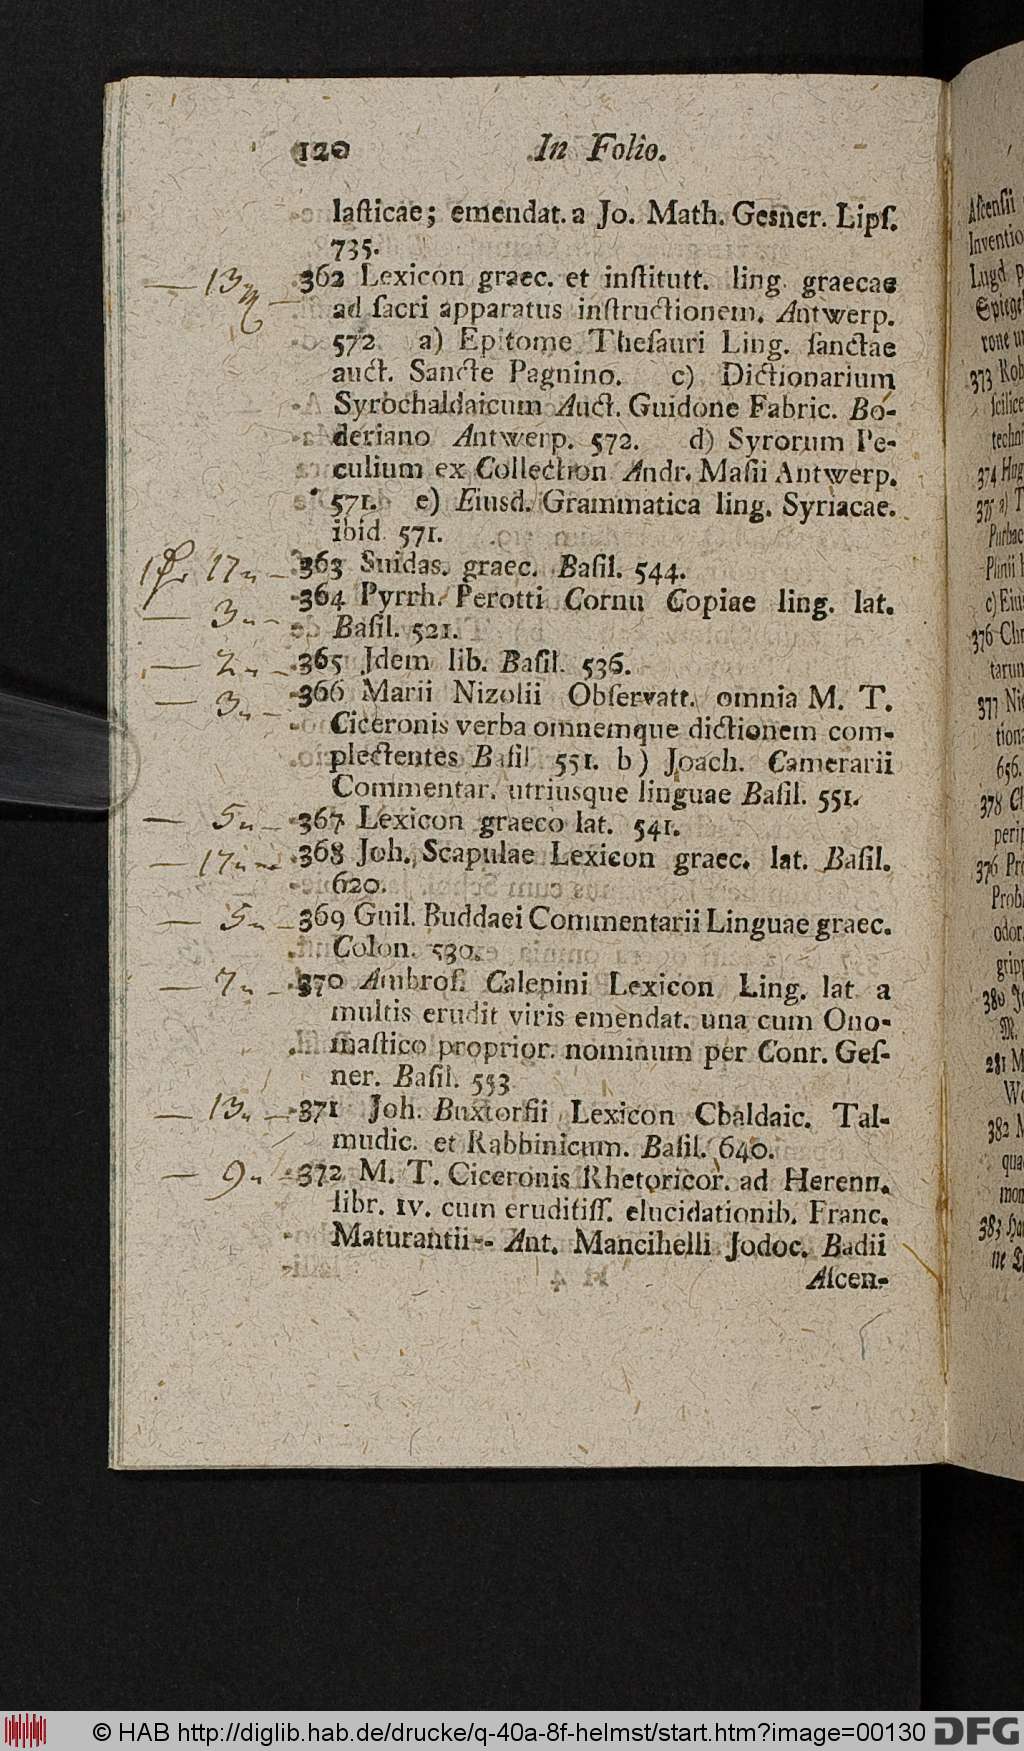 120 In Folio.
lasticae; emendat. a Jo. Math. Gesner. Lips.
735.
— 13 362 Lexicon graec. et institutt. ling. graecae
ad sacri apparatus instructionem. Antwerp.
572 a) Epitome Thesauri Ling. sanctae
auct. Sancte Pagnino. c) Dictionarium
Syrochaldaicum Auct. Guidone Fabric. Bo-
deriano Antwerp. 572. d) Syrorum Pe-
culium ex Collection Andr. Masii Antwerp.
571. e) Eiusd. Grammatica ling. Syriacae.
ibid. 571.
17 — 363 Suidas. graec. Basil. 544.
— 3 — 364 Pyrrh. Perotti Cornu Copiae ling. lat.
Basil. 521.
— 2 — 365 Jdem lib. Basil. 536.
— 3 — 366 Marii Nizolii Observatt. omnia M. T.
Ciceronis verba omnemque dictionem com-
plectentes Basil 551. b) Joach. Camerarii
Commentar. utriusque linguae Basil. 551.
— 5 — 367 Lexicon graeco lat. 541.
— 17 — 368 Joh. Scapulae Lexicon graec. lat. Basil.
620.
— 5 — 369 Guil. Buddaei Commentarii Linguae graec.
Colon. 530.
— 7 — 370 Ambros. Calepini Lexicon Ling. lat a
multis erudit viris emendat. una cum Ono-
mastico proprior. nominum per Conr. Ges-
ner. Basil. 553
— 13 — 371 Joh. Buxtorfii Lexicon Cbaldaic. Tal-
mudic. et Rabbinicum. Basil. 640.
— 9 — 372 M. T. Ciceronis Rhetoricor. ad Herenn.
libr. IV. cum eruditiss. elucidationib. Franc.
Maturantii-- Ant. Mancihelli Jodoc. Badii
Ascen-
Ascensii
Inventio
Lugd
Spiegel
373 Rob
scilice
techni
374 Hug
375 a) T
Purbac
Plinii
c) Eiu
376 Chr
tarum
377 Nic
tiona
656.
378 Cl
perip
376 Pro
Probl
odor.
gripp
380 J
M.
281 M
We
382 M
qua
mon
383 Ha
ne
© HAB http://diglib.hab.de/drucke/q-40a-8f-helmst/start.htm?image=00130 DFG